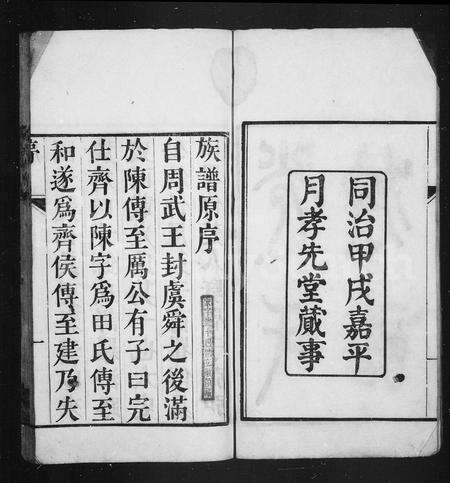 同治甲戌嘉平
月孝先堂蕆事
族譜原序
自周武王封虞舜之後滿
於陳傳至厲公有子曰完
仕齊以陳字爲田氏傳至
和遂爲齊侯傳至建乃失
序